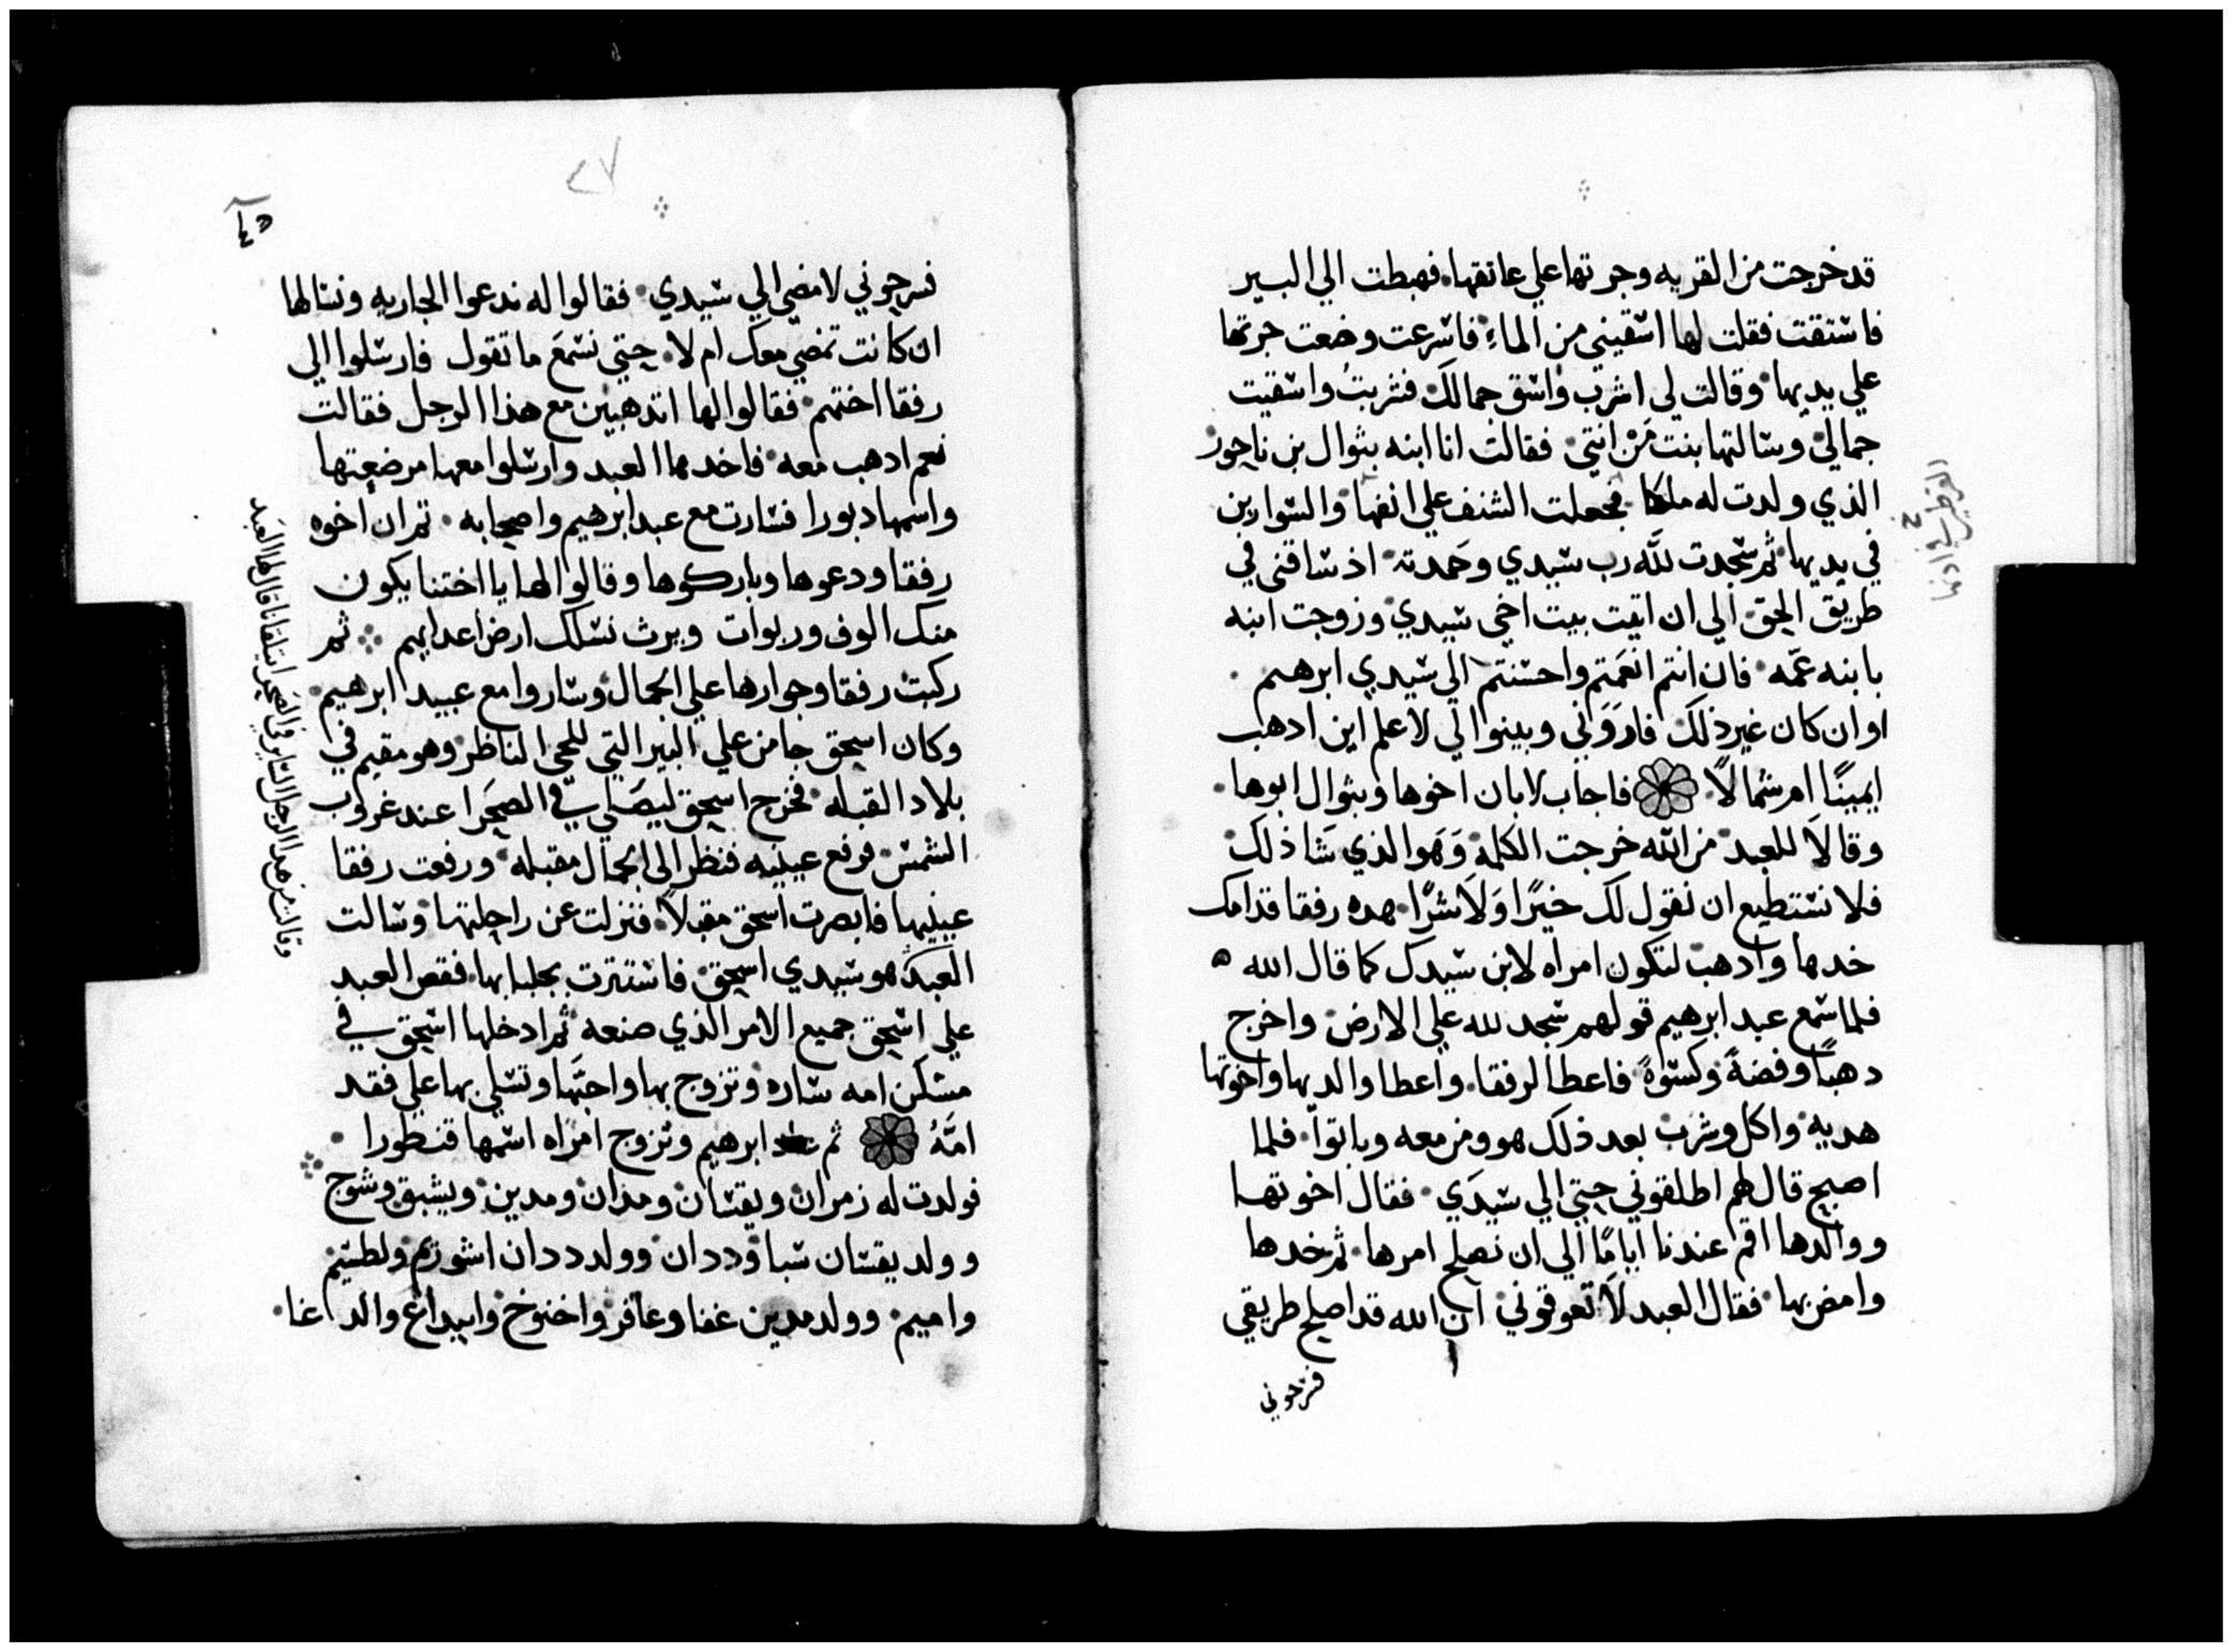 قد خرجت من القريه وجرتها علي عاتقها. فهبطت الي البير
فاستقت فقلت لها اسقيني من الماءِ فاسرعت وضعت جرتها
علي يديها وقالت لي اشرب واسق جمالك فشربتُ واسقيت
جمالي وسالتها بنت مَنْ انتي فقالت انا ابنه بثوال بن ناحور
الذي ولدت له ملكا فجعلت الشنف علي انفها والسوارين
في يديها ثم سجدت للّه رب سيدي وحَمدته اذ ساقني في
طريق الحق الي ان اتيت بيت اخي سيدي وزوجت ابنه
بابنه عمّه فان انتم انعمتم واحسنتم الي سيدي ابرهيم
او ان كان غير ذلك فاروَني وبينوا لي لاعلم اين ادهب
ايمينًا ام شمالًا فاجاب لابان اخوها وبثوال ابوها
وقالَا للعبد من اللّه خرجت الكلمة وَهَوا لذي شَا ذلك
فلا نستطيع ان نقول لك خيرًا وَلَا شرًا هده رفقا قدامك
خدها وادهب لتكون امراه لابن سيدك كما قال الله ه
فلما سمع عبد ابرهيم قولهم سجد لله علي الارض واخرج
دهبًا وفضةً وكسوةً فاعطا لرفقا. واعطا والديها واخوتها
هديه واكل وشرب بعد ذلك هو ومن معه وباتوا فلما
اصبح قال لهم اطلقوني حتي الي سيدَي فقال اخوتها
ووالدها اقم عندنا ايامًا الي ان نصلح امرها ثم خدها
وامض بها فقال العبد لَا تعوقوني ان الله قد اصلح طريقي
فسرحوني
٤٥
٤٧
فسرحوني لامضي الي سيدي فقالوا له ندعوا الجاريه ونسالها
ان كانت تمضي معك ام لا حتي نسمعَ ما تقول فارسلوا الي
رفقا اختهم فقالوا لها اتدهبين مع هذا الرجل فقالت
نعم ادهب معه فاخدها العبد وارسلوا معها مرضعتها
واسمها دبورا فسارت مع عبد ابرهيم واصحابه ثم ان اخوه
رفقا ودعوها وباركوها وقالوا لها يا اختنا يكون
منك الوف وربوات ويرث نسلك ارض اعدايهم ثم
ركبت رفقا وجوارها علي الجمال وساروا مع عبيد ابرهيم
وكان اسحق جا من علي البير التي للحي الناظر وهو مقيم في
بلاد القبله فخرج اسحق ليصَلي في الصحَرا عند غروب
الشمس فرفع عينيه فنظر الي الجمال مقبله ورفعت رفقا
عينيها فابصرت اسحق مقبلًا فنزلت عن راحلتها وسالت
العبد هو سيدي اسحق فاستترت بجلبابها فقص العبد
علي اسحق جميع الامر الذي صنعه ثم ادخلها اسحق في
مسكن امه ساره وتزوج بها واحبَّها وتسلي بها علي فقد
امّهُ ثم ابرهيم وتزوج امرَاه اسمها قنطورا
فولدت له زمران ويقسان ومذان ومدين ويشبق وشوح
وولد يقسان سبا وددان وولد ددان اشوريم ولطسيم
واميم وولد مدين عفا وعافر واخنوخ وابيداع والداعا
وقالت من هدا الرجل الساير في الصحرا يتلقانا قال لها العبَد